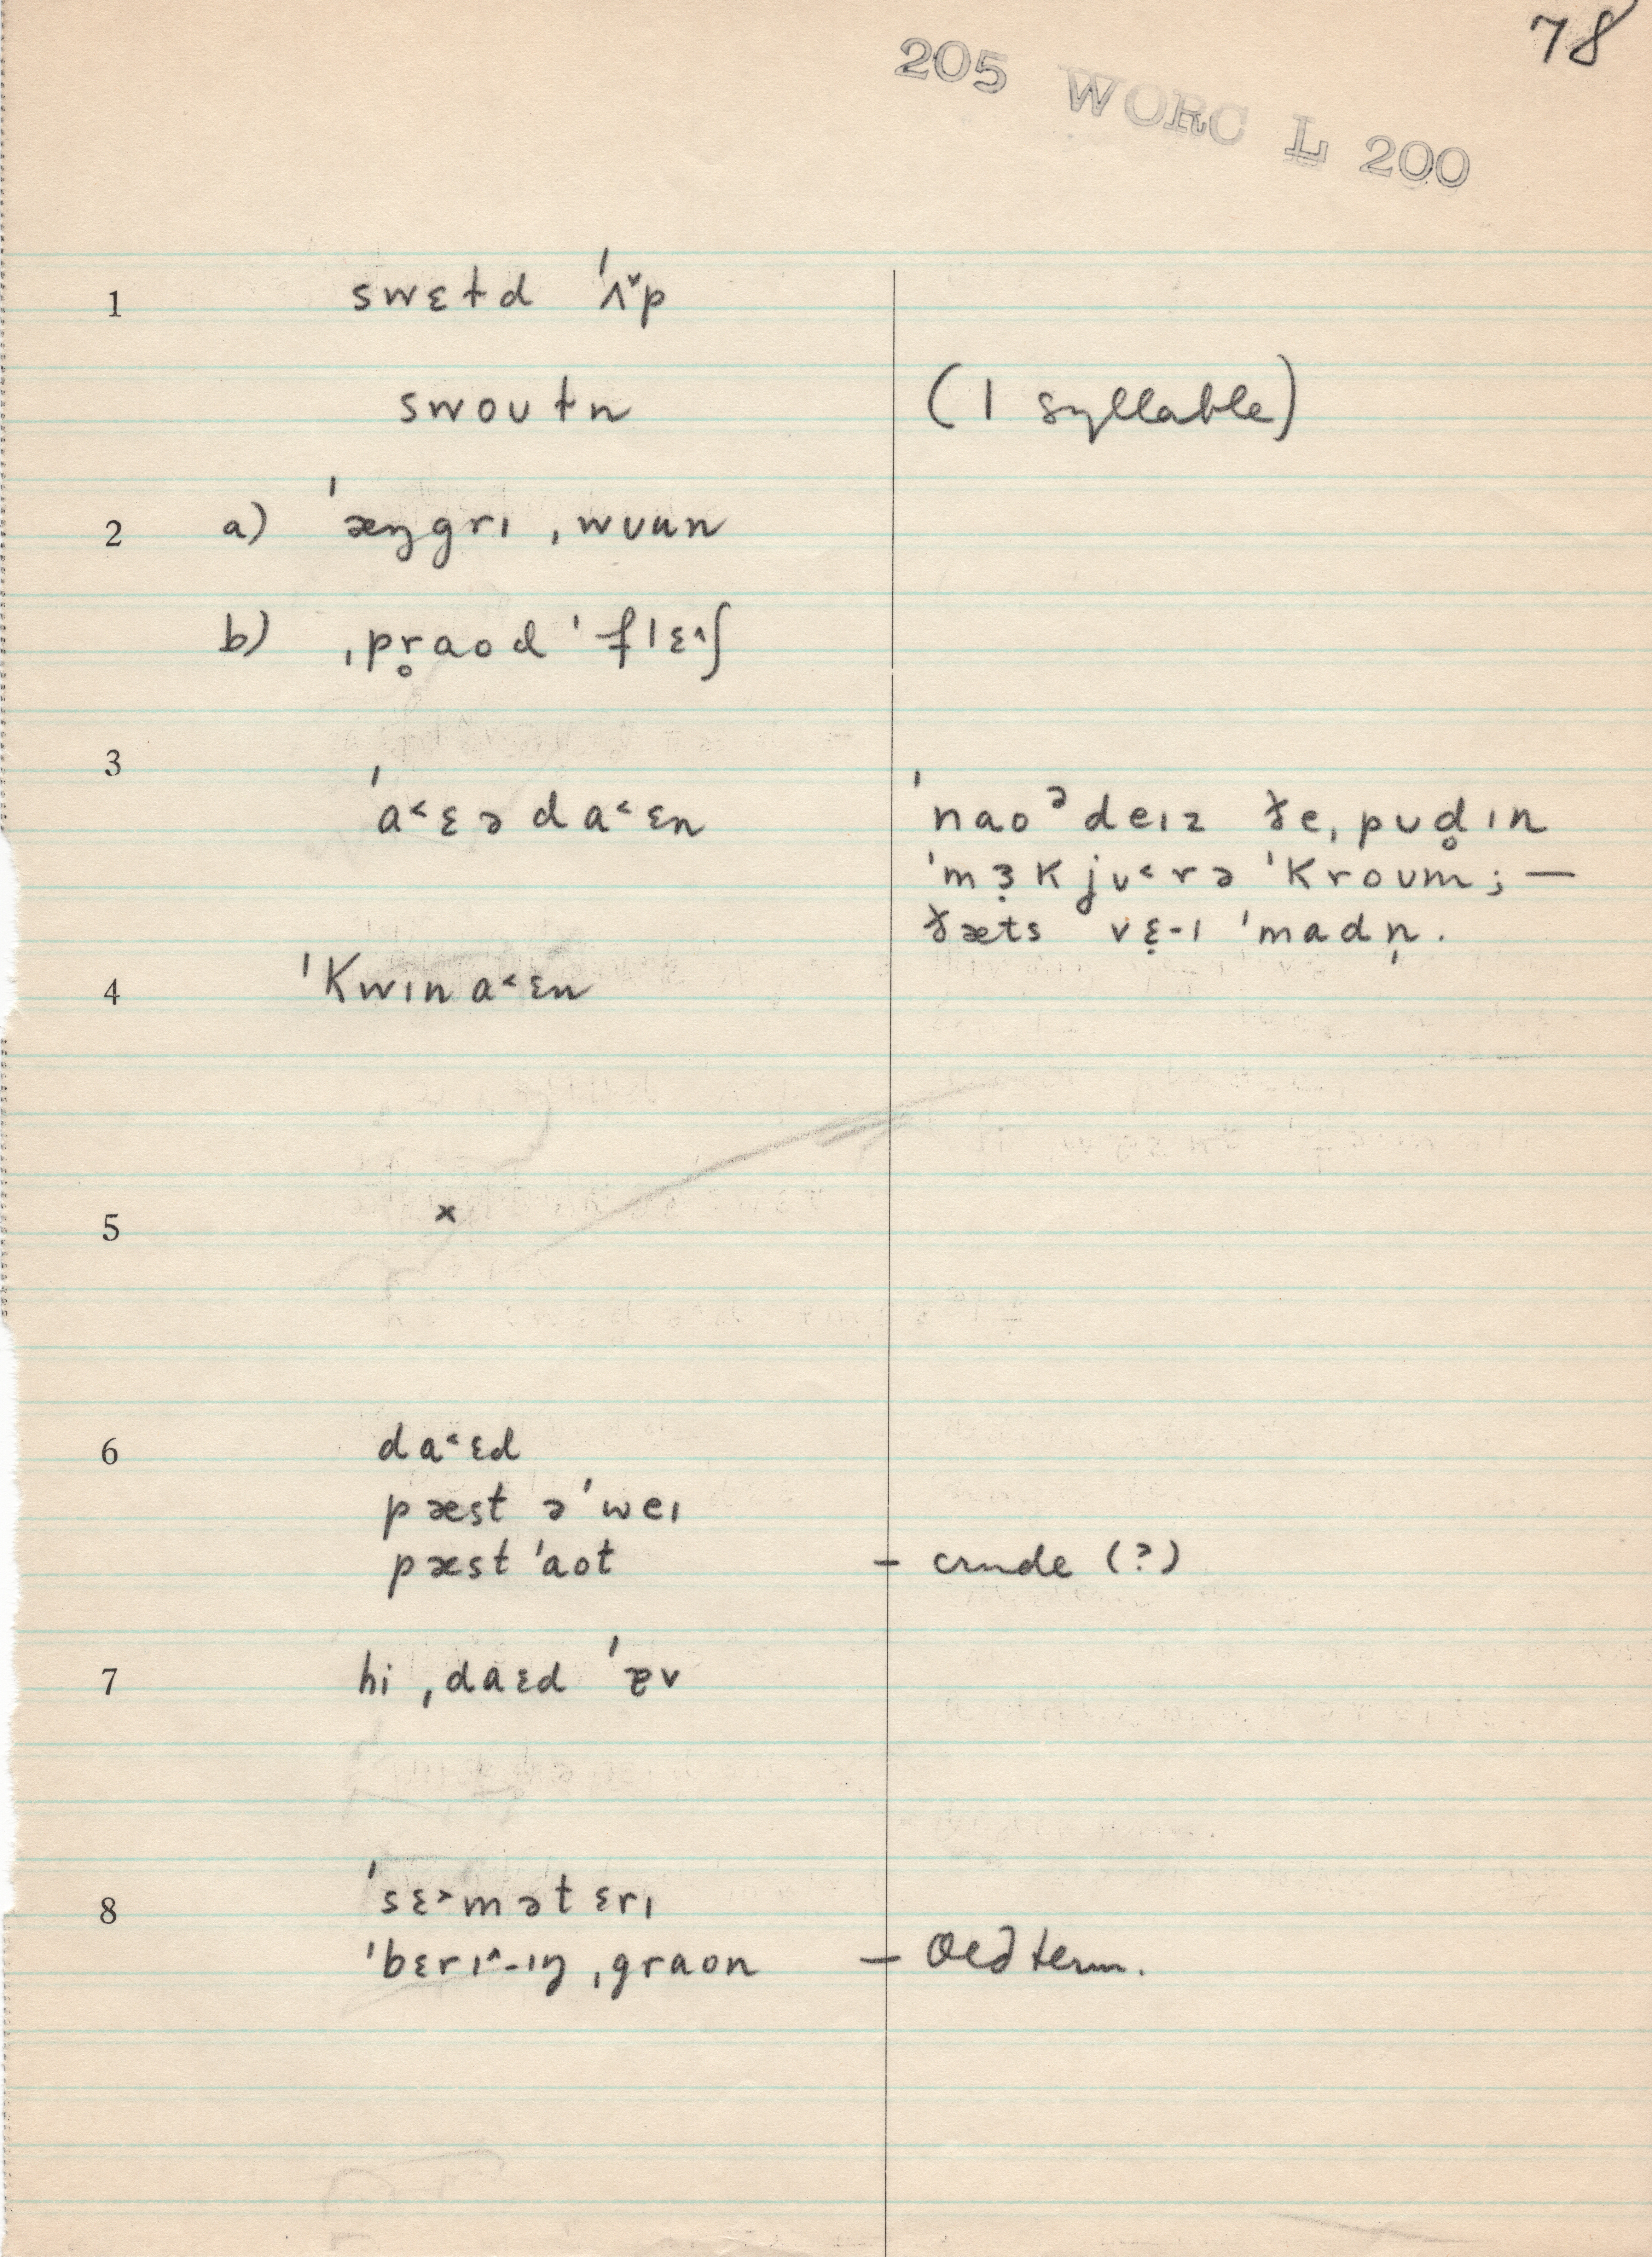 78
205 WORC L 200
1 swɛɫd ˈʌ˅p
swoʊɫn (1 syllable)
2 a) ˈæŋgrɪ ˌwuun
b) ˌpr̥aod ˈflɛ˄ʃ
3
ˈa˂ɛəda˂ɛn ˈnaoᵊdeɪz ðe ˌpʊd̥ɪn
ˈmɜ̣kjʊ˂rə ˈkroʊm; —
ðæts vɛ̣-ɪ ˈmadn̩.
4 ˈkwɪna˂ɛn
5 x
6 da˂ɛd
pæst əˈweɪ
pæst ˈaot – crude (?)
7 hi ˌdaɛd ˈɐv
8 ˈsɛ˃mətɛrɪ
ˈbɛrɪ˄-ɪŋ ˌgraon – Old term.